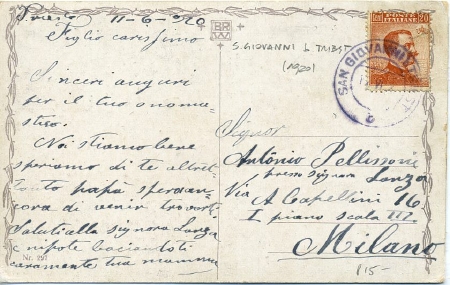 Trieste 11-6-920
Figlio carissimo
Sinceri auguri
per il tuo onoma-
stico.
Noi stiamo bene
speriamo di te altret-
tanto papà spera an-
cora di venir trovarti
Saluti alla signora Lanza
e nipote baciandoti
caramente tua mamma
Nr. 291
BRW
S. GIOVANNI DI TRIESTE
(1920)
20
SAN GIOVANNI
Signor
Antonio Pellissoni
presso signora Lanza
Via A Capellini 16
I piano scala III
Milano
815-